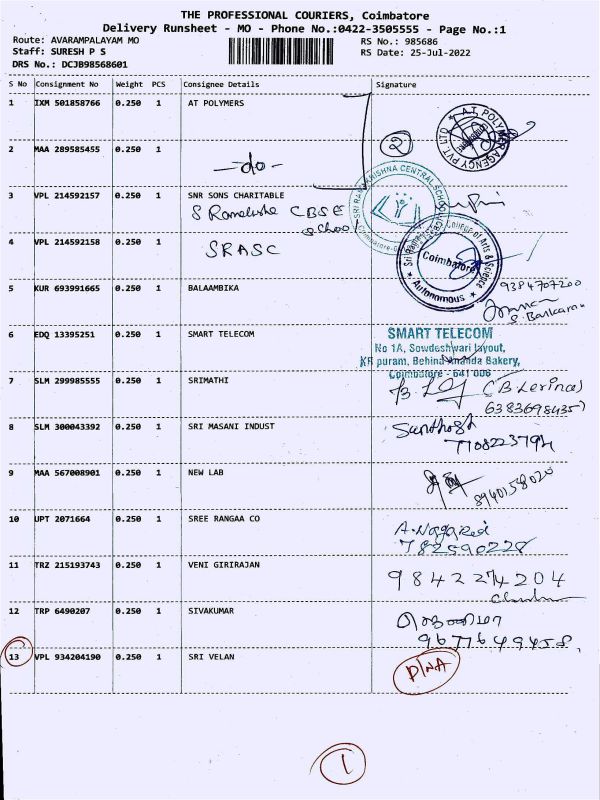 THE PROFESSIONAL COURIERS, Coimbatore
Delivery Runsheet - MO - Phone No.:0422-3505555 - Page No.:1
Route: AVARAMPALAYAM MO RS No.: 985686
Staff: SURESH P S RS Date: 25-Jul-2022
DRS No.: DCJB98568601
S No Consignment No Weight PCS Consignee Details Signature
1 IXM 501858766 0.250 1 AT POLYMERS
A.T. POLYMER AGENCY PVT. LTD
2 MAA 289585455 0.250 1
-do- 2
3 VPL 214592157 0.250 1 SNR SONS CHARITABLE
CBSE School
SRI RAMAKRISHNA CENTRAL SCHOOL
4 VPL 214592158 0.250 1
SRASC
College of Arts & Science
Coimbatore
Autonomous
5 KUR 693991665 0.250 1 BALAAMBIKA
9384707200
6 EDQ 13395251 0.250 1 SMART TELECOM
SMART TELECOM
No 1A, Sowdeshwari layout,
KR puram, Behind Ananda Bakery,
Coimbatore - 641 006
7 SLM 299985555 0.250 1 SRIMATHI
6383698435
8 SLM 300043392 0.250 1 SRI MASANI INDUST
Santhosh
9 MAA 567008901 0.250 1 NEW LAB
8940158020
10 UPT 2071664 0.250 1 SREE RANGAA CO
A.Nagaraj
11 TRZ 215193743 0.250 1 VENI GIRIRAJAN
9842274204
12 TRP 6490207 0.250 1 SIVAKUMAR
9677649458
13 VPL 934204190 0.250 1 SRI VELAN
D/NA
1